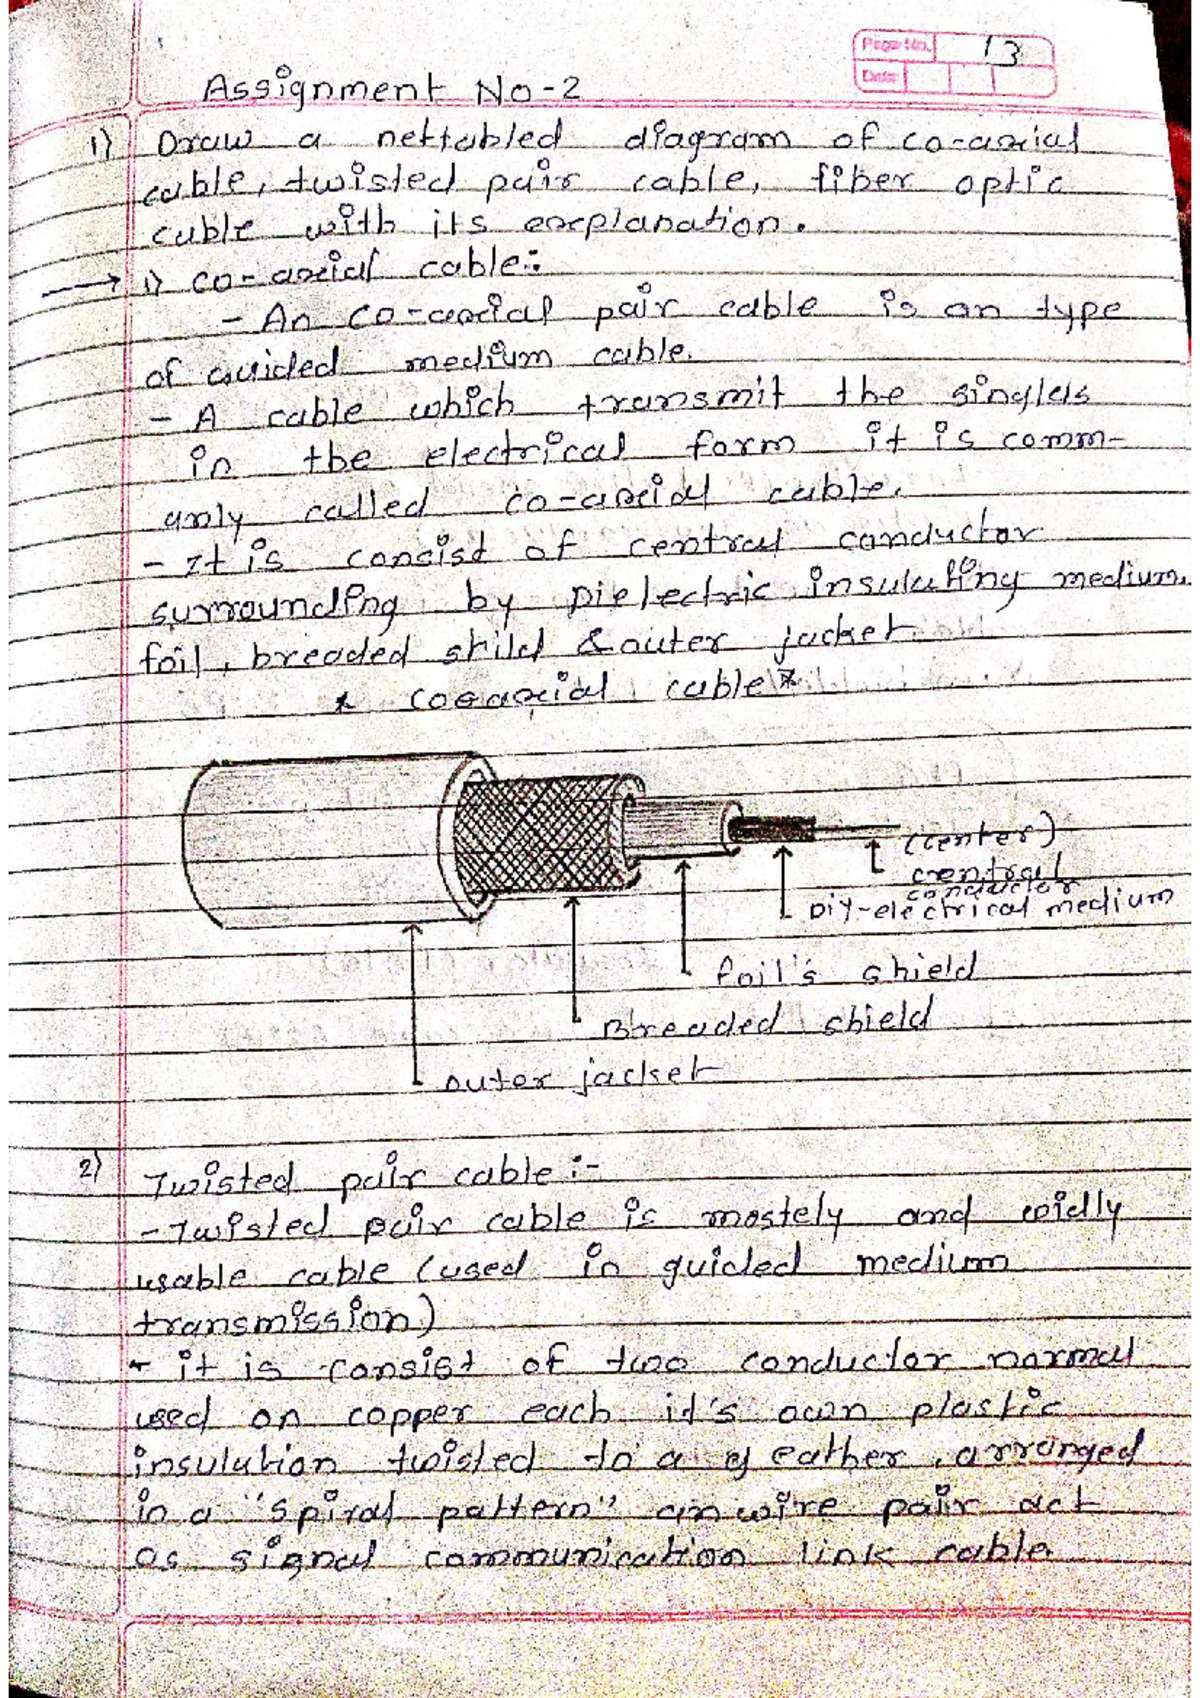 Page No. 13
Date
Assignment No-2
1) Draw a nettabled diagram of co-axial
cable, twisted pair cable, fiber optic
cable with its explanation.
→ 1) co-axial cable:
- An co-axial pair cable is an type
of guided medium cable.
- A cable which transmit the singlas
in the electrical form it is comm-
anly called co-axial cable.
- It is concist of central conductor
surrounding by Dielectric insulating medium.
foil, breaded shild & outer jacket
* coaxial cable *
(center)
central
conductor
Diy-electrical medium
foil's shield
Breaded shield
outer jacket
2) Twisted pair cable :-
- Twisted pair cable is mostely and widly
usable cable (used in guided medium
transmission)
- it is consist of two conductor normal
used on copper each it's own plastic
insulation twisted to a eather, arranged
in a "spiral pattern" wire pair act
as signal communication link cable.